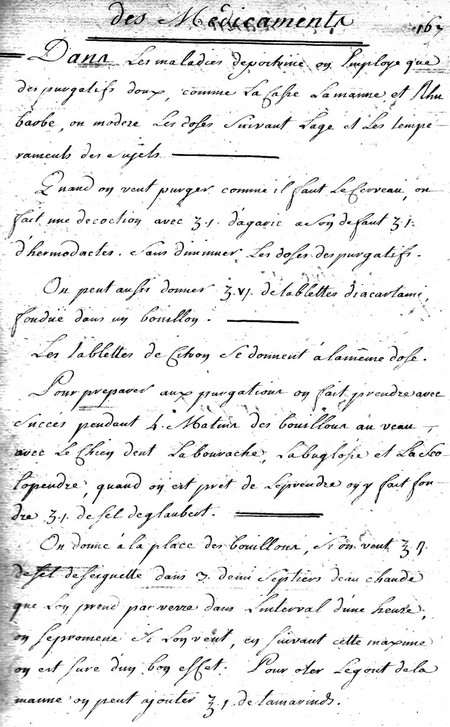 des Médicaments
167
Dans Les maladies depoitrine on Employe que
des purgatifs doux, comme La Casse Lamanne et Rhu
barbe, on modere Les doses suivant Lage et Les tempe-
raments des sujets.
Quand on veut purger comme il faut Le Cerveau, on
fait une decoction avec ʒ.1. d'agaric a son defaut ʒ.1.
d'hermodactes. sans diminuer Les doses des purgatifs.
On peut aussi donner ʒ.vj. de tablettes diacartami,
fondue dans un bouillon.
Les tablettes de Citron se donnent à la même dose.
Pour preparer aux purgations on fait prendre avec
succes pendant 4. Matins des bouillons au veau
avec Le Chien dent La bourache, La buglose et La Sco
lopendre, quand on est pret de Leprendre on y fait fon-
dre ʒ.1. de sel de glaubert.
On donne à la place des bouillons, si on veut
de sel de seignette dans 3 demi septiers deau chaude
que Lon prend par verre dans Linterval d'une heure,
on sepromene si Lon veut, en suivant cette maxime
on est sure d'un bon effet. Pour oter Legout de la
manne on peut ajouter ʒ.1. de tamarinds.